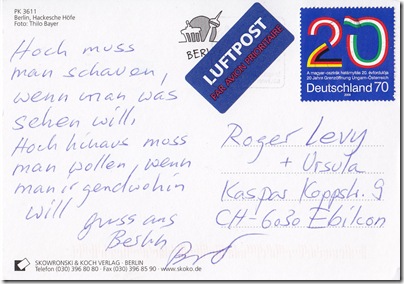 PK 3611
Berlin, Hackesche Höfe
Foto: Thilo Bayer
Hoch muss
man schauen,
wenn man was
sehen will,
Hoch hinaus muss
man wollen, wenn
man irgendwohin
will
gruss aus
Berlin
BERLIN
LUFTPOST
PAR AVION/PRIORITAIRE
20
A magyar-osztrák határnyitás 20. évfordulója
20 Jahre Grenzöffnung Ungarn-Österreich
Deutschland 70
Roger Levy
+ Ursula
Kaspar Koppstr. 9
CH-6030 Ebikon
SKOWRONSKI & KOCH VERLAG · BERLIN
Telefon (030) 396 80 80 · Fax (030) 396 85 90 · www.skoko.de